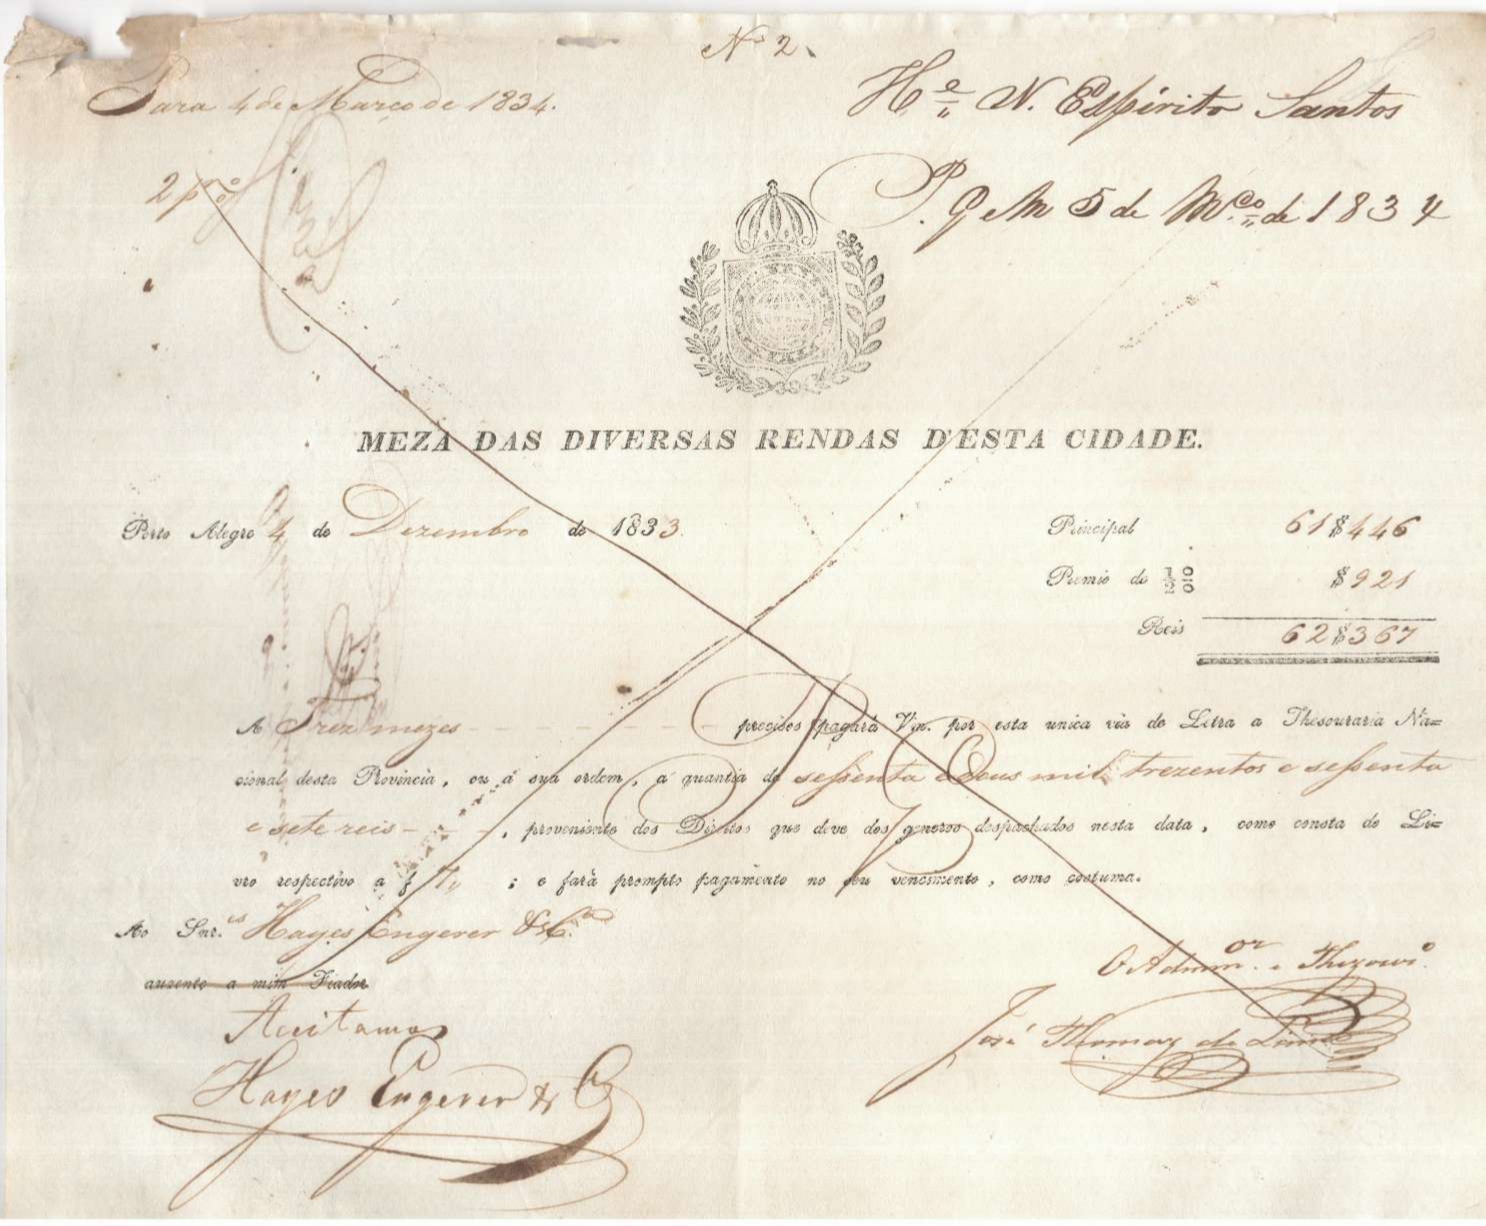 Nº 2.
Para 4 de Março de 1834.
Hº N. Espirito Santos
P. G em 5 de Mço de 1834
MEZA DAS DIVERSAS RENDAS D'ESTA CIDADE.
Porto Alegre 4 de Dezembro de 1833
Principal 61$446
Premio de ½ 0/0 $921
Reis 62$367
A Trez mezes precisos pagará Vm. por esta unica via de Letra a Thesouraria Na=
cional desta Provincia, ou á sua ordem, a quantia de sessenta e Dous mil trezentos e sessenta
e sete reis, proveniente dos Direitos que deve dos generos despachados nesta data, como consta do Li=
vro respectivo a f ; e fará prompto pagamento no seu vencimento, como costuma.
Ao Snr.es Hayes Engerer & Ca
auzente a mim Fiador
O Admm.or e Thezouro.
Aceitamos
José Thomaz de Lima
Hayes Engerer & C